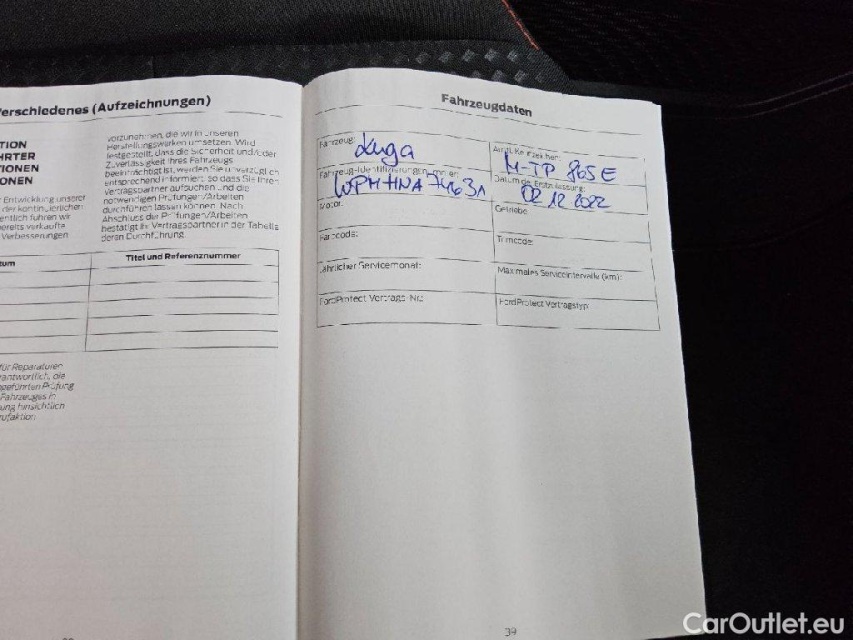 Verschiedenes (Aufzeichnungen)
vorzunehmen, die wir in unseren
Herstellungswerken umsetzen. Wird
festgestellt, dass die Sicherheit und/oder
Zuverlässigkeit Ihres Fahrzeugs
beeinträchtigt ist, werden Sie unverzüglich
entsprechend informiert, so dass Sie Ihren
Vertragspartner aufsuchen und die
notwendigen Prüfungen/Arbeiten
durchführen lassen können. Nach
Abschluss der Prüfungen/Arbeiten
bestätigt Ihr Vertragspartner in der Tabelle
deren Durchführung.
TION
HRTER
TIONEN
ONEN
Entwicklung unserer
der kontinuierlichen
entlich führen wir
bereits verkaufte
Verbesserungen
tum
Titel und Referenznummer
für Reparaturen
antwortlich, die
geführten Prüfung
Fahrzeuges in
ung hinsichtlich
Fahrzeugdaten
Fahrzeug: Kuga
Amtl. Kennzeichen: M-TP 865E
Fahrzeug-Identifizierungsnummer:
Datum der Erstzulassung: 02 12 2022
Motor:
Getriebe:
Farbcode:
Trimcode:
Jährlicher Servicemonat:
Maximales Serviceintervalle (km):
FordProtect Vertrags-Nr.:
FordProtect Vertragstyp:
39
CarOutlet.eu